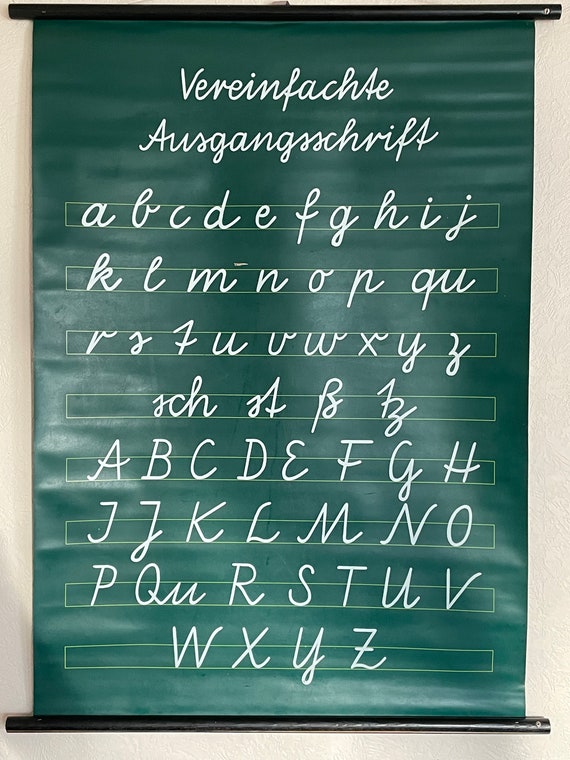 Vereinfachte
Ausgangsschrift
a b c d e f g h i j
k l m n o p qu
r s t u v w x y z
sch st ß tz
A B C D E F G H
I J K L M N O
P Qu R S T U V
W X Y Z